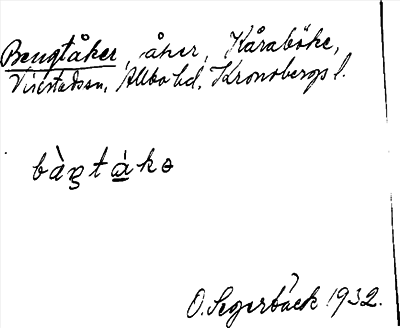 Bengtåker, åker, Kåraböke,
Virestadssn, Allbo hd, Kronobergs l.
bàŋtá̱kə
O. Segerbäck 1932.